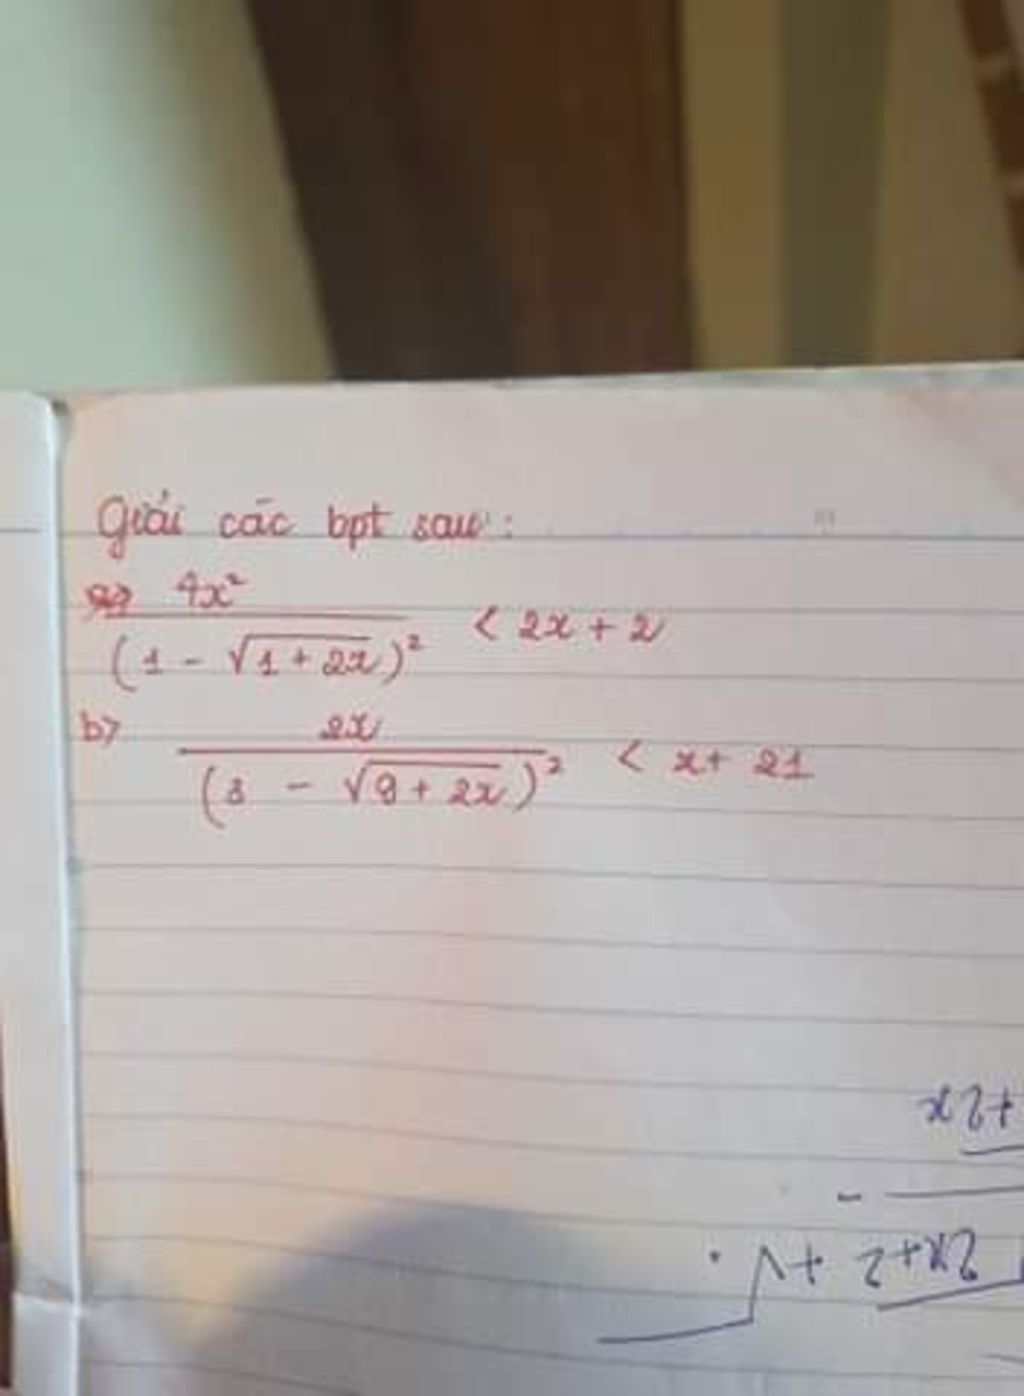 Giải các bpt sau:
a> 4x² / (1 - √1+2x)² < 2x + 2
b> 2x / (3 - √9+2x)² < x + 21